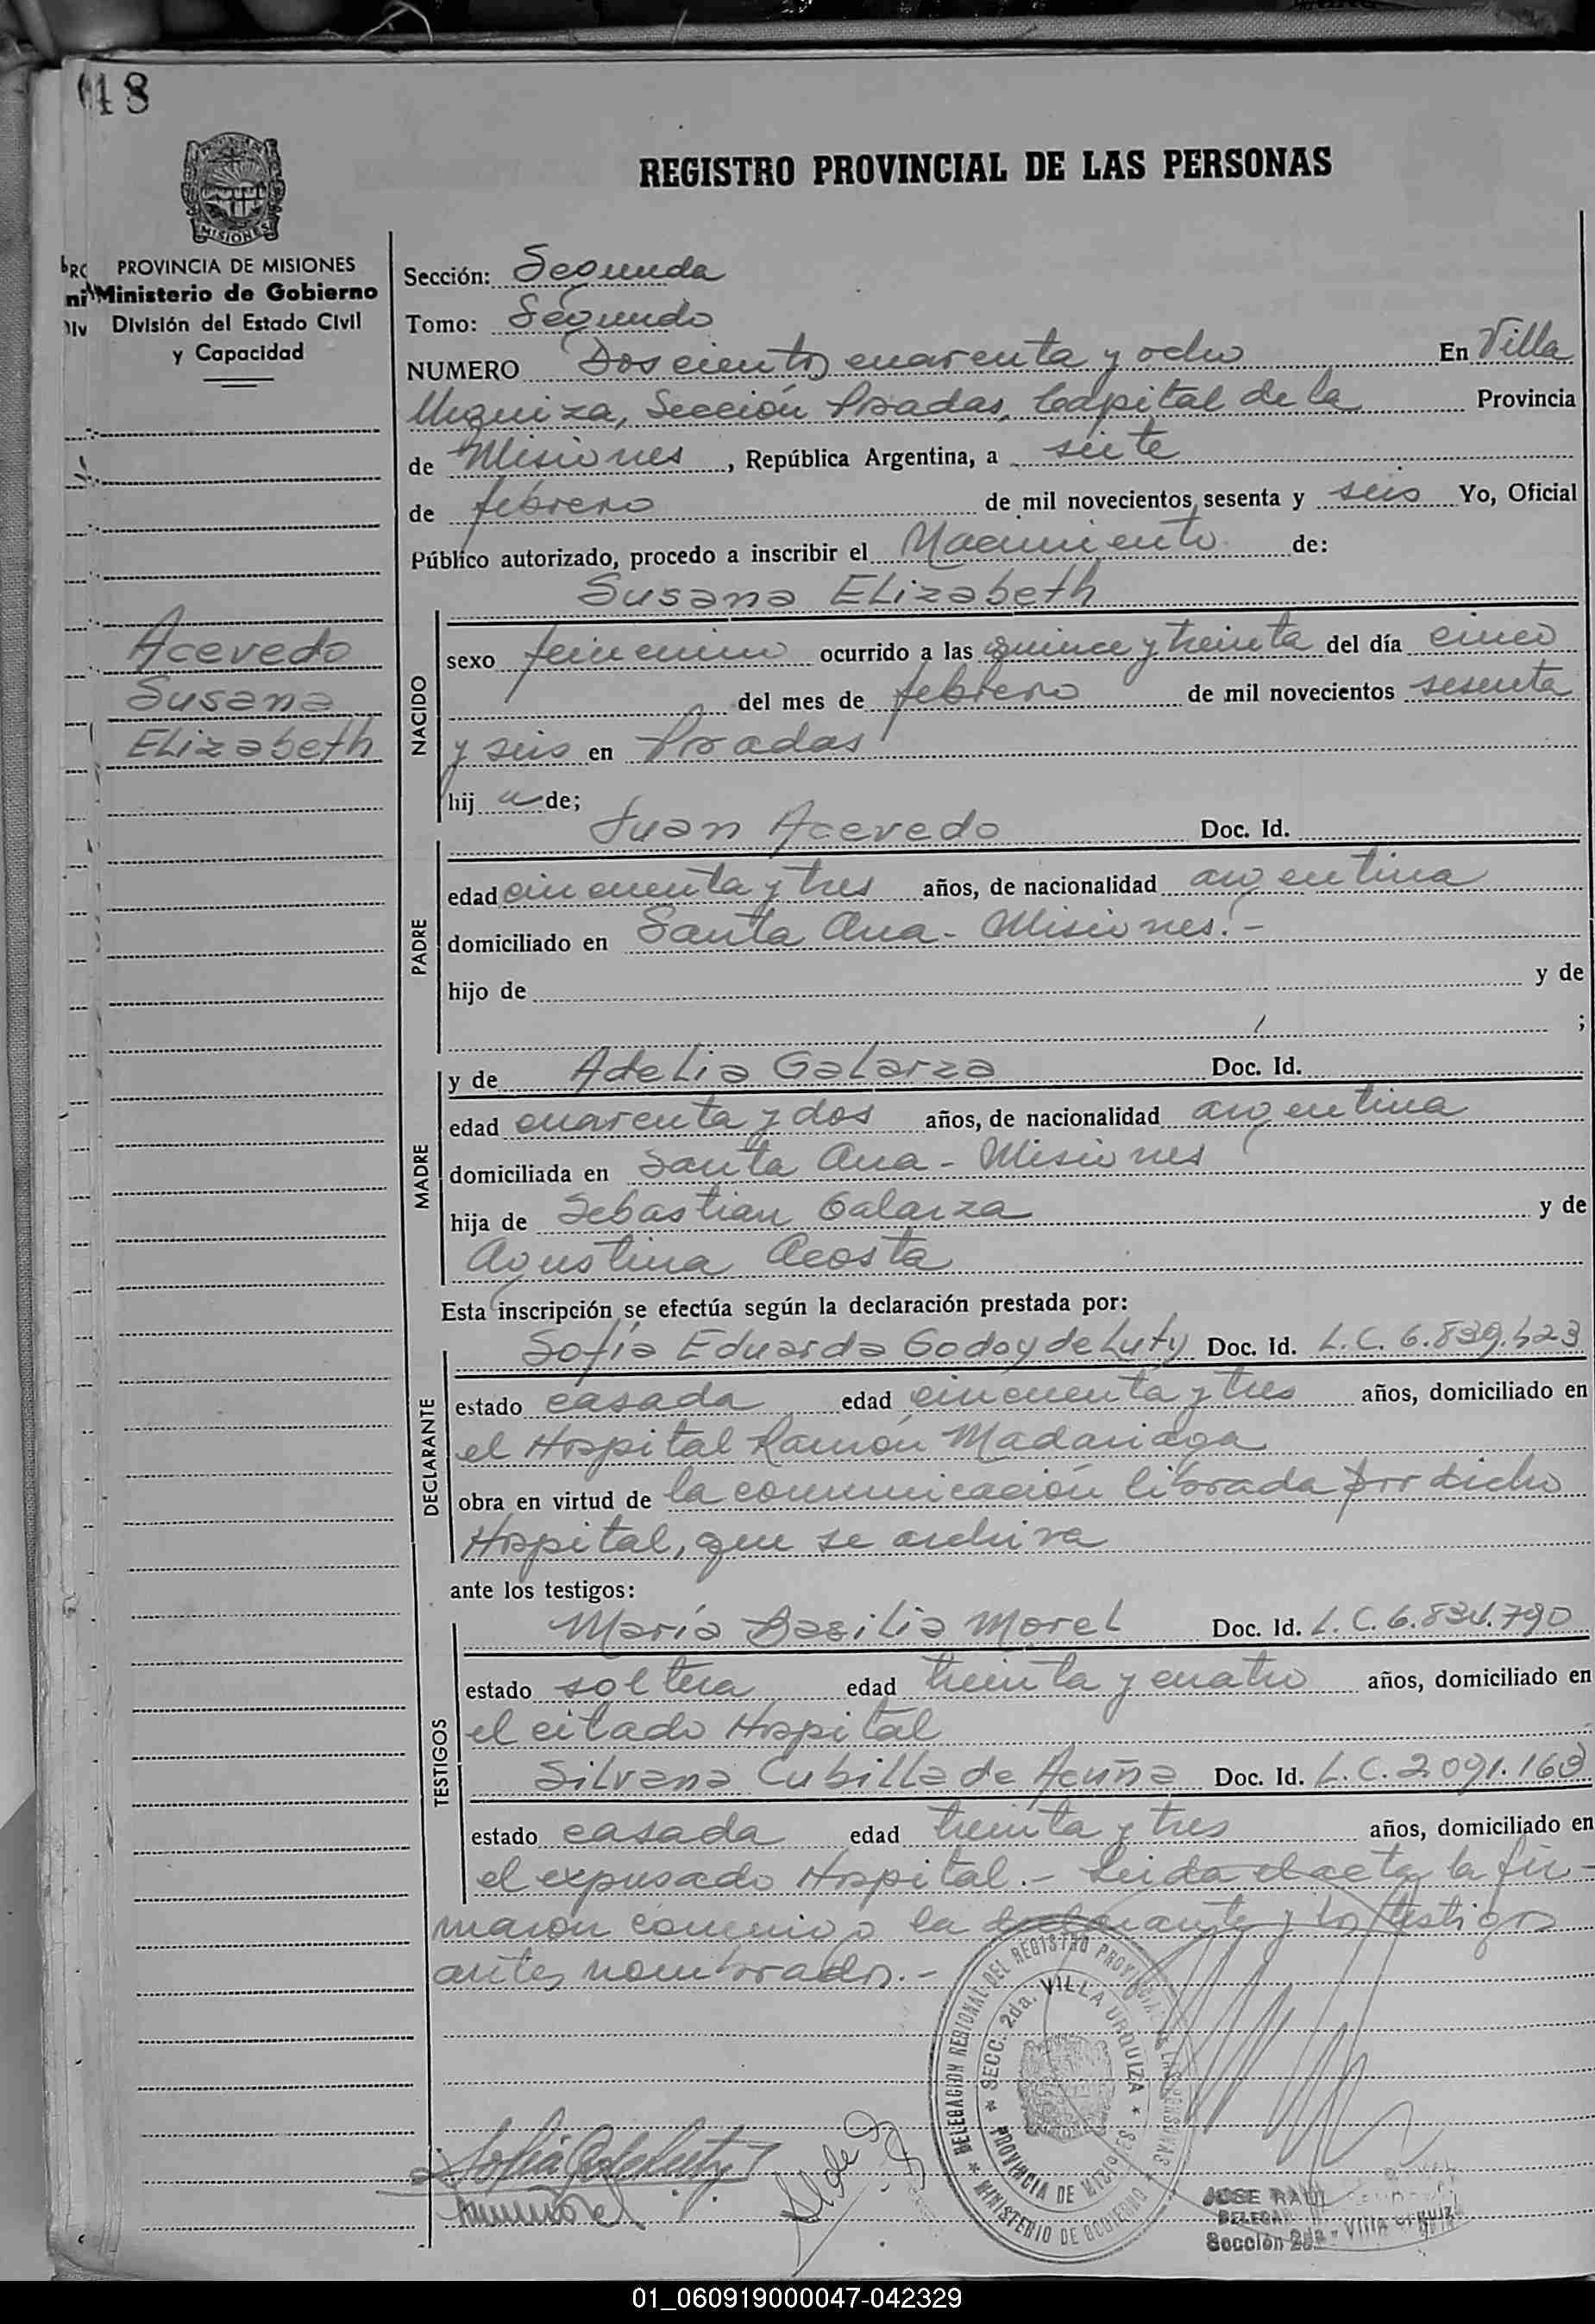 48
REGISTRO PROVINCIAL DE LAS PERSONAS
MISIONES
PROVINCIA DE MISIONES
Ministerio de Gobierno
División del Estado Civil
y Capacidad
Acevedo
Susana
Elizabeth
Sección: Segunda
Tomo: Segundo
NUMERO Doscientos cuarenta y ocho En Villa
Urquiza, Sección Posadas, Capital de la Provincia
de Misiones, República Argentina, a siete
de febrero de mil novecientos sesenta y seis Yo, Oficial
Público autorizado, procedo a inscribir el Nacimiento de:
Susana Elizabeth
NACIDO
sexo femenino ocurrido a las quince y treinta del día cinco
del mes de febrero de mil novecientos sesenta
y seis en Posadas
hij a de;
Juan Acevedo Doc. Id.
PADRE
edad cincuenta y tres años, de nacionalidad argentina
domiciliado en Santa Ana - Misiones.-
hijo de y de
;
y de Adelia Galarza Doc. Id.
MADRE
edad cuarenta y dos años, de nacionalidad argentina
domiciliada en Santa Ana - Misiones
hija de Sebastian Galarza y de
Agustina Acosta
Esta inscripción se efectúa según la declaración prestada por:
Sofía Eduarda Godoy de Luty Doc. Id. L.C. 6.839.523
DECLARANTE
estado casada edad cincuenta y tres años, domiciliado en
el Hospital Ramón Madariaga
obra en virtud de la comunicación librada por dicho
Hospital, que se archiva
ante los testigos:
María Basilia Morel Doc. Id. L.C. 6.834.790
TESTIGOS
estado soltera edad treinta y cuatro años, domiciliado en
el citado Hospital
Silvana Cubilla de Acuña Doc. Id. L.C. 2.091.163
estado casada edad treinta y tres años, domiciliado en
el expresado Hospital.- Leida el acta, la fir-
maron conmigo la declarante y los testigos
antes nombrados.-
DELEGACION REGIONAL DEL REGISTRO PROVINCIAL DE LAS PERSONAS
* SECC. 2da. VILLA URQUIZA *
PROVINCIA DE MISIONES
* MINISTERIO DE GOBIERNO *
JOSE RAUL
Sección 2da - Villa Urquiza
01_060919000047-042329